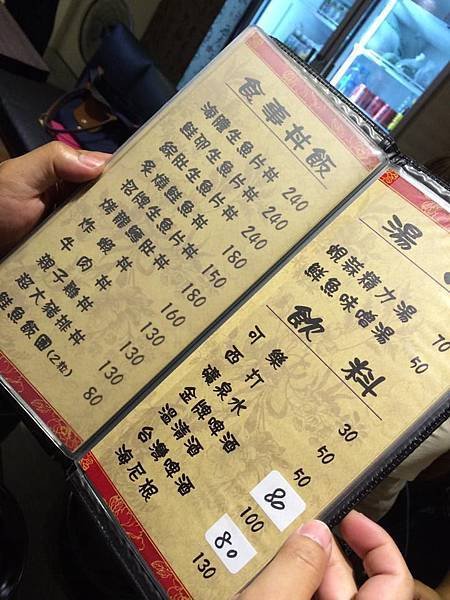 食事丼飯
海膽生魚片丼 240
鮭卵生魚片丼 240
生魚片丼 240
炙燒鮭魚丼 180
招牌生魚片丼 150
180
炸蝦丼 160
牛肉丼 130
親子雞丼 130
超大豬排丼 130
鮭魚飯團(2粒) 80
湯
蜆蒜精力湯 70
鮮魚味噌湯 50
飲料
可樂 30
西打 50
礦泉水 50
金牌啤酒 80
溫清酒 100
台灣啤酒 80
海尼根 130